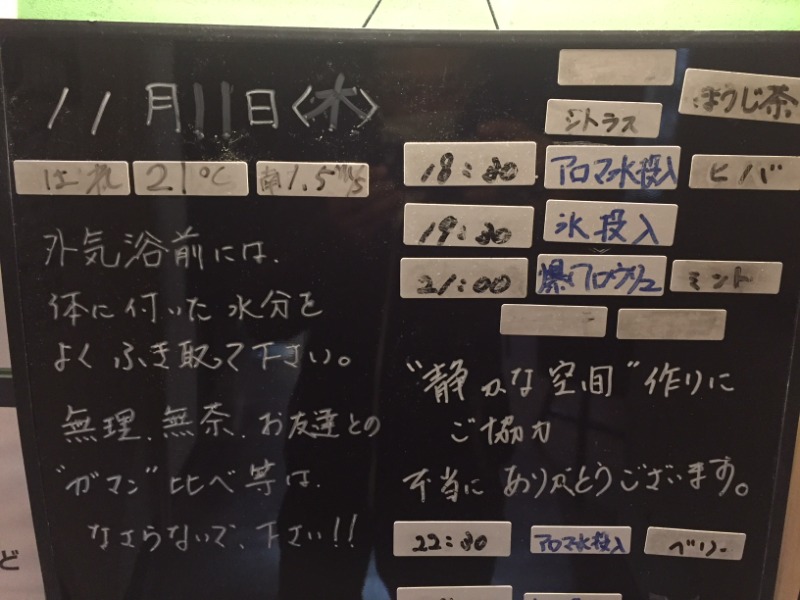 11月11日〈木〉
はれ 21℃ 南1.5m/s
外気浴前には、
体に付いた水分を
よくふき取って下さい。
無理、無茶、お友達との
"ガマン"比べ等は、
なさらないで、下さい!!
シトラス ほうじ茶
18:30 アロマ水投入 ヒバ
19:30 氷投入
21:00 爆アロウリュ ミント
"静かな空間"作りに
ご協力
本当にありがとうございます。
22:30 アロマ水投入 ベリー
ど